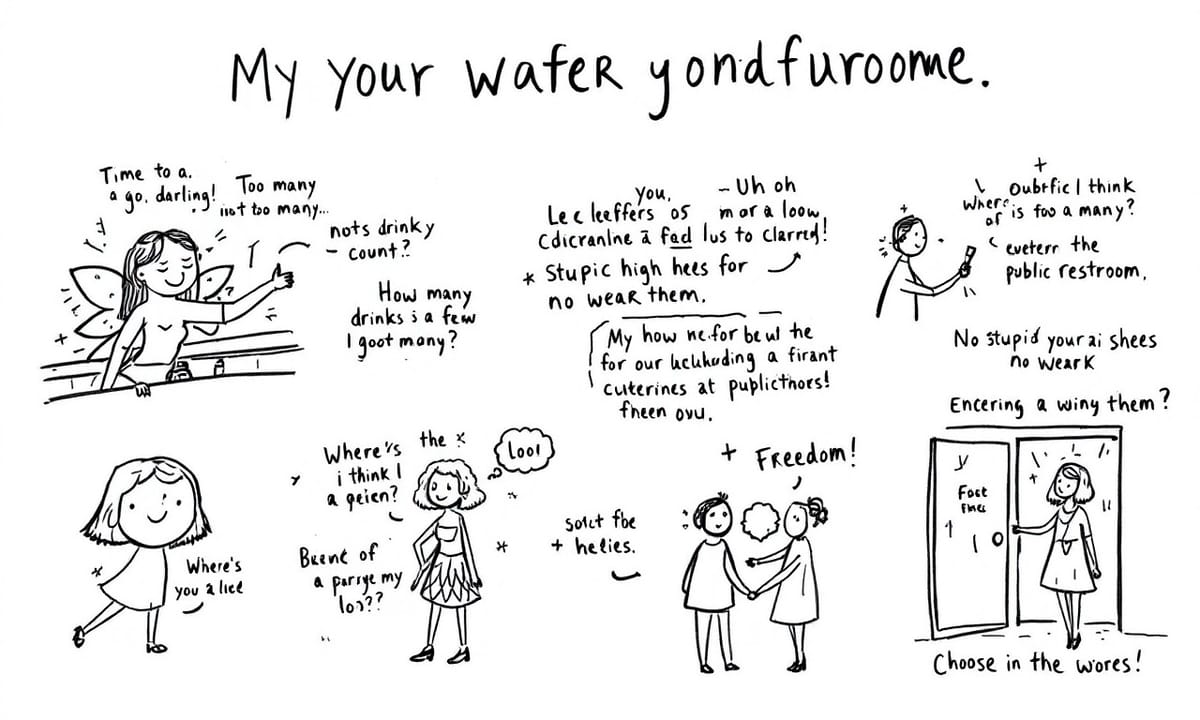 My your wafer yondfuroome.
Time to a.
a go, darling!
Too many
not too many...
nots drinky
- count?
How many
drinks is a few
I goot mony?
You,
Lec leeffers os
Cdicranlne ā fad
- Uh oh
m or a loow,
lus to clarred!
* Stupic high hees for
no wear them.
My how ne.for be ul the
for our a firant
cuterines at puplicthors!
fheen ovu.
+
Oubtfic I think
where is foo a many?
of
eveterr the
public restroom,
No stupid your ai shees
no weark
Encering a winy them?
Where's
you a lice
Where's the
i think I
a qeien?
Loo!
Buent of
a parrye my
lo)??
solct fbe
+ helies.
+ Freedom!
Foct
Fines
Choose in the wores!